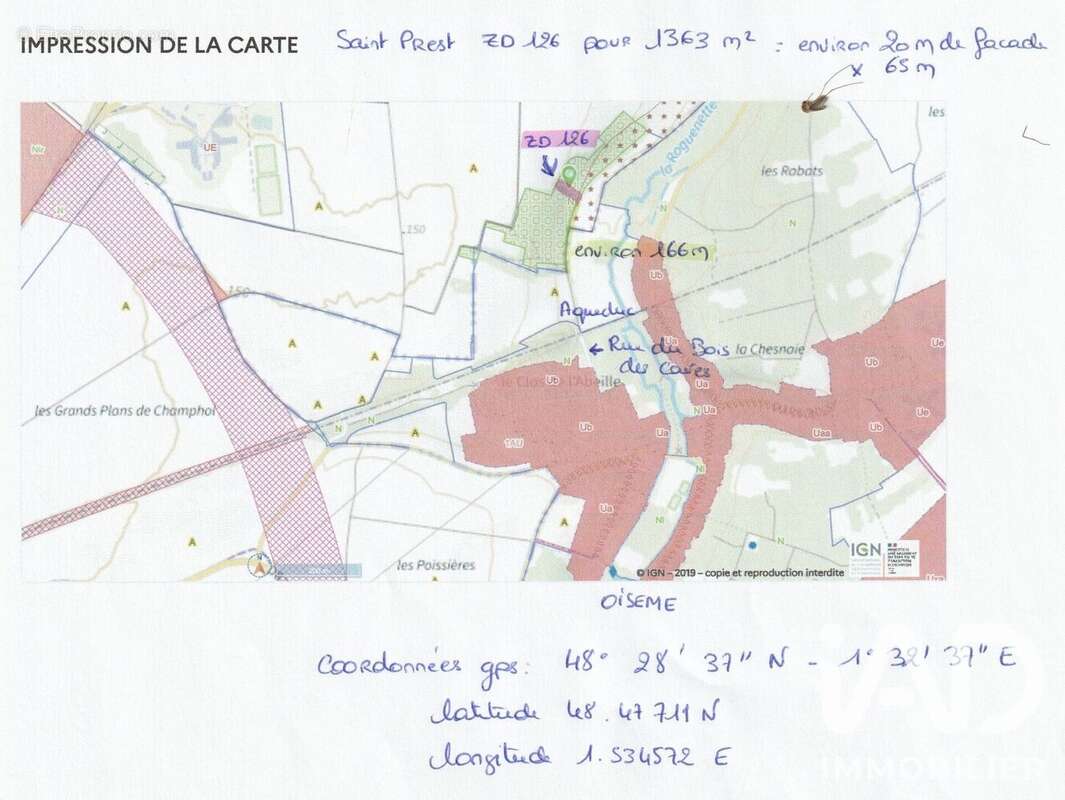 IMPRESSION DE LA CARTE
Saint Prest ZD 126 pour 1363 m² = environ 20 m de facade
x 65 m
les
Nv
UE
ZD 126
la Roguenette
les Rabats
A
N
A
150
N
N
environ 166 m
Ub
A
A
150
Aqueduc
Ua
A
A
N
← Rue du Bois
des Caves
la Chesnaie
Ub
Ue
le Clos de l'Abeille
Ub
Ua
les Grands Plans de Champhol
A
A
N
N
A
N
Ua
Ue
Ub
Ua
Uaa
Ub
1AU
N
Ua
A
Nl
A
N
les Poissières
IGN
© IGN - 2019 - copie et reproduction interdite
OISEME
Coordonnées gps: 48° 28' 37" N - 1° 32' 37" E
latitude 48.47719 N
longitude 1.534572 E
IAD
IMMOBILIER